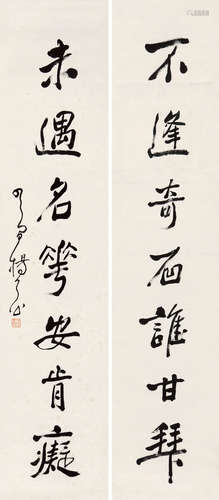 不逢奇石誰甘拜
未遇名花安肯癡